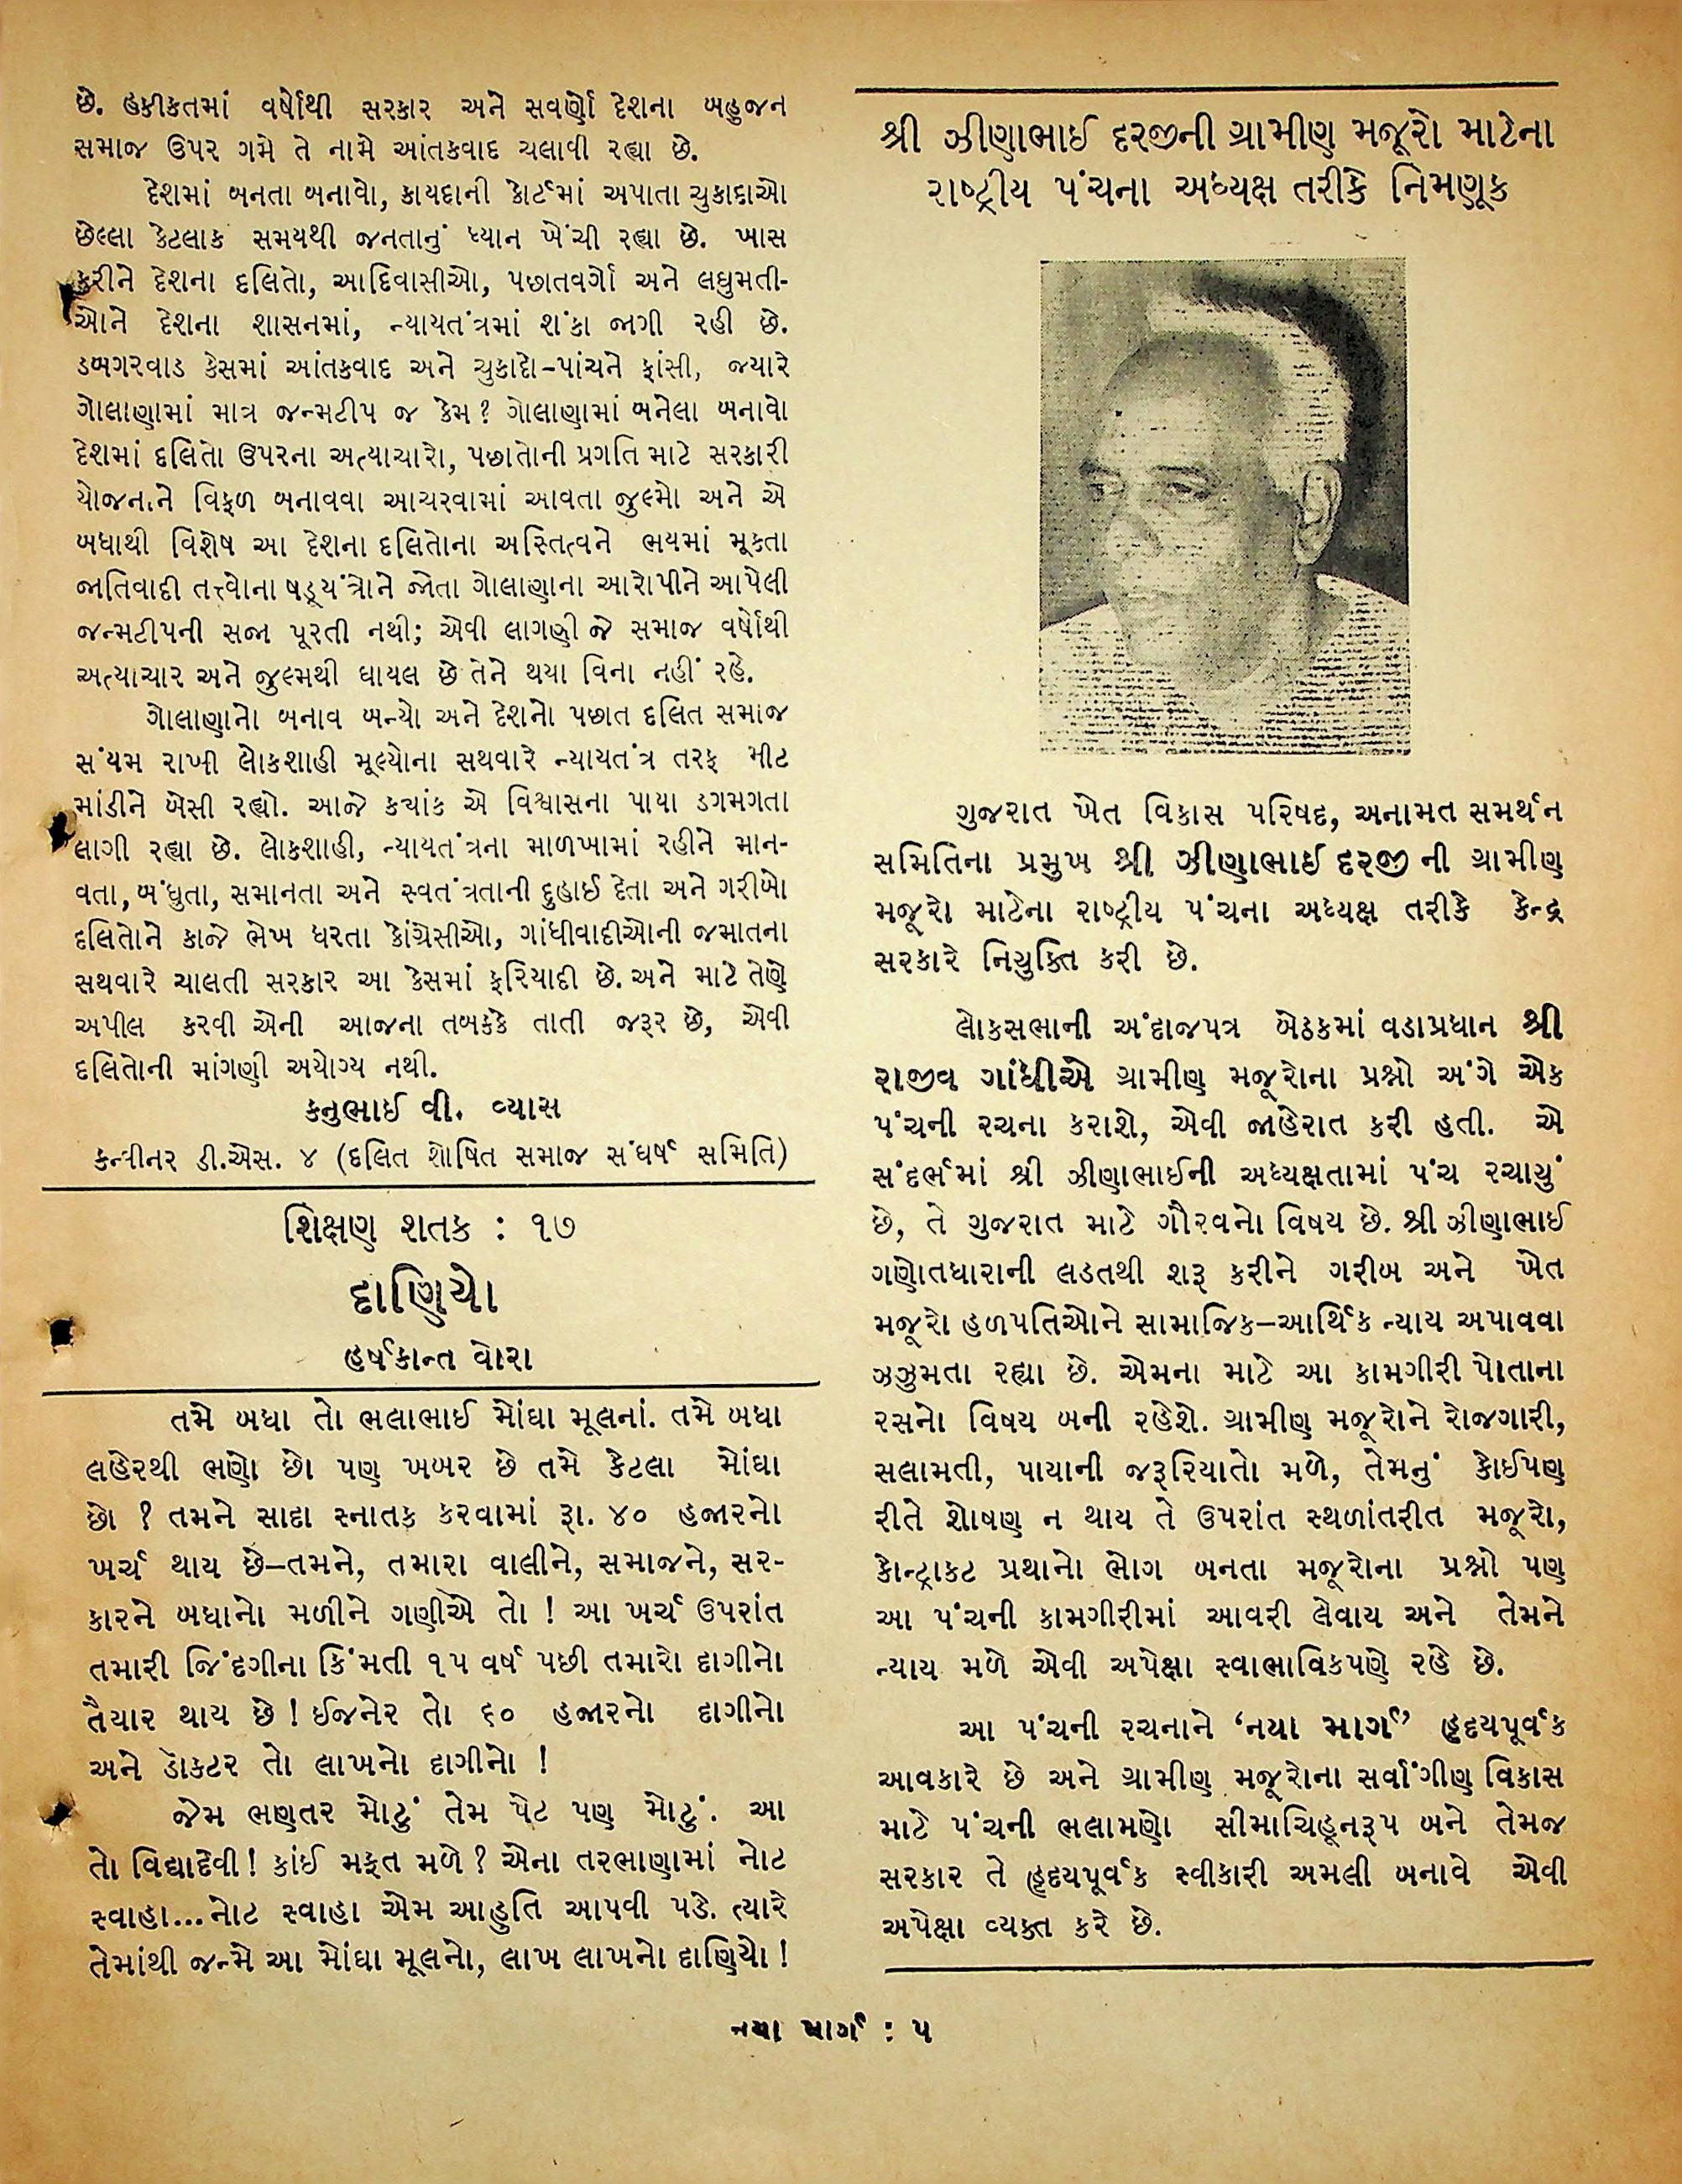 છે. હકીકતમાં વર્ષોથી સરકાર અને સવર્ણો દેશના બહુજન
સમાજ ઉપર ગમે તે નામે આંતકવાદ ચલાવી રહ્યા છે.
દેશમાં બનતા બનાવો, કાયદાની કોર્ટમાં અપાતા ચુકાદાઓ
છેલ્લા કેટલાક સમયથી જનતાનું ધ્યાન ખેંચી રહ્યા છે. ખાસ
કરીને દેશના દલિતો, આદિવાસીઓ, પછાતવર્ગો અને લઘુમતી-
ઓને દેશના શાસનમાં, ન્યાયતંત્રમાં શંકા જાગી રહી છે.
ડબગરવાડ કેસમાં આંતકવાદ અને ચુકાદો-પાંચને ફાંસી, જ્યારે
ગોલાણામાં માત્ર જન્મટીપ જ કેમ? ગોલાણામાં બનેલા બનાવો
દેશમાં દલિતો ઉપરના અત્યાચારો, પછાતોની પ્રગતિ માટે સરકારી
યોજનાને વિફળ બનાવવા આચરવામાં આવતા જુલ્મો અને એ
બધાથી વિશેષ આ દેશના દલિતોના અસ્તિત્વને ભયમાં મૂકતા
જાતિવાદી તત્ત્વોના ષડ્યંત્રોને જોતા ગોલાણાના આરોપીને આપેલી
જન્મટીપની સજા પૂરતી નથી; એવી લાગણી જે સમાજ વર્ષોથી
અત્યાચાર અને જુલ્મથી ઘાયલ છે તેને થયા વિના નહીં રહે.
ગોલાણાનો બનાવ બન્યો અને દેશનો પછાત દલિત સમાજ
સંયમ રાખી લોકશાહી મૂલ્યોના સથવારે ન્યાયતંત્ર તરફ મીટ
માંડીને બેસી રહ્યો. આજે કયાંક એ વિશ્વાસના પાયા ડગમગતા
લાગી રહ્યા છે. લોકશાહી, ન્યાયતંત્રના માળખામાં રહીને માન-
વતા, બંધુતા, સમાનતા અને સ્વતંત્રતાની દુહાઈ દેતા અને ગરીબો
દલિતોને કાજે ભેખ ધરતા કોંગ્રેસીઓ, ગાંધીવાદીઓની જમાતના
સથવારે ચાલતી સરકાર આ કેસમાં ફરિયાદી છે. અને માટે તેણે
અપીલ કરવી એની આજના તબકકે તાતી જરૂર છે, એવી
દલિતોની માંગણી અયોગ્ય નથી.
કનુભાઈ વી. વ્યાસ
કન્વીનર ડી.એસ. ૪ (દલિત શોષિત સમાજ સંઘર્ષ સમિતિ)
શિક્ષણ શતક : ૧૭
દાણિયો
હર્ષકાન્ત વોરા
તમે બધા તો ભલાભાઈ મોંઘા મૂલનાં. તમે બધા
લહેરથી ભણો છો પણ ખબર છે તમે કેટલા મોંઘા
છો ? તમને સાદા સ્નાતક કરવામાં રૂા. ૪૦ હજારનો
ખર્ચ થાય છે–તમને, તમારા વાલીને, સમાજને, સર-
કારને બધાનો મળીને ગણીએ તો ! આ ખર્ચ ઉપરાંત
તમારી જિંદગીના કિંમતી ૧૫ વર્ષ પછી તમારો દાગીનો
તૈયાર થાય છે ! ઈજનેર તો ૬૦ હજારનો દાગીનો
અને ડૉકટર તો લાખનો દાગીનો !
જેમ ભણતર મોટું તેમ પેટ પણ મોટું. આ
તો વિદ્યાદેવી ! કાંઈ મફત મળે ? એના તરભાણામાં નોટ
સ્વાહા...નોટ સ્વાહા એમ આહુતિ આપવી પડે. ત્યારે
તેમાંથી જન્મે આ મોંઘા મૂલનો, લાખ લાખનો દાણિયો !
શ્રી ઝીણાભાઈ દરજીની ગ્રામીણ મજૂરો માટેના
રાષ્ટ્રીય પંચના અધ્યક્ષ તરીકે નિમણૂક
ગુજરાત ખેત વિકાસ પરિષદ, અનામત સમર્થન
સમિતિના પ્રમુખ શ્રી ઝીણાભાઈ દરજી ની ગ્રામીણ
મજૂરો માટેના રાષ્ટ્રીય પંચના અધ્યક્ષ તરીકે કેન્દ્ર
સરકારે નિયુક્તિ કરી છે.
લોકસભાની અંદાજપત્ર બેઠકમાં વડાપ્રધાન શ્રી
રાજીવ ગાંધીએ ગ્રામીણ મજૂરોના પ્રશ્નો અંગે એક
પંચની રચના કરાશે, એવી જાહેરાત કરી હતી. એ
સંદર્ભમાં શ્રી ઝીણાભાઈની અધ્યક્ષતામાં પંચ રચાયું
છે, તે ગુજરાત માટે ગૌરવનો વિષય છે. શ્રી ઝીણાભાઈ
ગણોતધારાની લડતથી શરૂ કરીને ગરીબ અને ખેત
મજૂરો હળપતિઓને સામાજિક–આર્થિક ન્યાય અપાવવા
ઝઝુમતા રહ્યા છે. એમના માટે આ કામગીરી પોતાના
રસનો વિષય બની રહેશે. ગ્રામીણ મજૂરોને રોજગારી,
સલામતી, પાયાની જરૂરિયાતો મળે, તેમનું કોઈપણ
રીતે શોષણ ન થાય તે ઉપરાંત સ્થળાંતરીત મજૂરો,
કોન્ટ્રાકટ પ્રથાનો ભોગ બનતા મજૂરોના પ્રશ્નો પણ
આ પંચની કામગીરીમાં આવરી લેવાય અને તેમને
ન્યાય મળે એવી અપેક્ષા સ્વાભાવિકપણે રહે છે.
આ પંચની રચનાને ‘નયા માર્ગ’ હૃદયપૂર્વક
આવકારે છે અને ગ્રામીણ મજૂરોના સર્વાંગીણ વિકાસ
માટે પંચની ભલામણો સીમાચિહ્નરૂપ બને તેમજ
સરકાર તે હૃદયપૂર્વક સ્વીકારી અમલી બનાવે એવી
અપેક્ષા વ્યક્ત કરે છે.
નયા માર્ગ : ૫